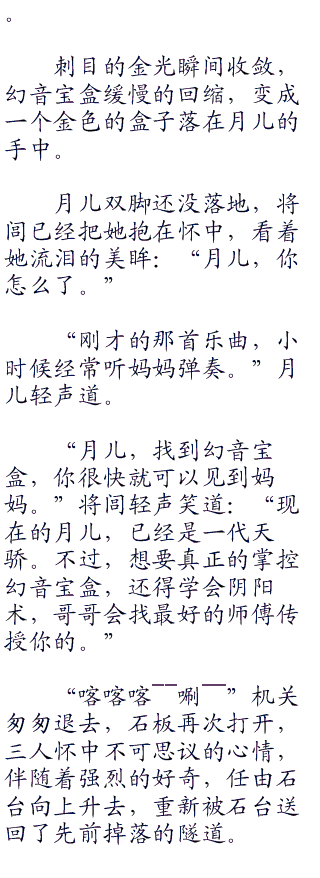 。
刺目的金光瞬间收敛，
幻音宝盒缓慢的回缩，变成
一个金色的盒子落在月儿的
手中。
月儿双脚还没落地，将
闾已经把她抱在怀中，看着
她流泪的美眸：“月儿，你
怎么了。”
“刚才的那首乐曲，小
时候经常听妈妈弹奏。”月
儿轻声道。
“月儿，找到幻音宝
盒，你很快就可以见到妈
妈。”将闾轻声笑道：“现
在的月儿，已经是一代天
骄。不过，想要真正的掌控
幻音宝盒，还得学会阴阳
术，哥哥会找最好的师傅传
授你的。”
“喀喀喀――唰――”机关
匆匆退去，石板再次打开，
三人怀中不可思议的心情，
伴随着强烈的好奇，任由石
台向上升去，重新被石台送
回了先前掉落的隧道。